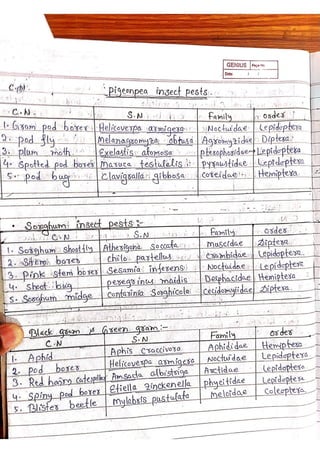 GENIUS Page No.
Date / /
pigeonpea insect pests.
C.N. S.N Family order
1. Gram pod borer Helicoverpa armigera Noctuidae Lepidoptera
2. pod fly Melanagromyza obtusa Agromyzidae Diptera
3. plum moth Exelastis atomosa pterophoridae Lepidoptera
4. Spotted pod borer Maruca testulalis Pyraustidae Lepidoptera
5. pod bug Clavigralla gibbosa coreidae Hemiptera
• Sorghum insect pests:-
C.N S.N Family order
1. Sorghum shootfly Atherigona soccata Muscidae Diptera
2. Stem borer chilo partellus Crambidae Lepidoptera
3. Pink stem borer Sesamia inferens Noctuidae Lepidoptera
4. Shoot bug peregrinus maidis Delphacidae Hemiptera
5. Sorghum midge contarinia Sorghicola Cecidomyiidae Diptera
Black gram & Green gram:-
C.N S.N Family order
1. Aphid Aphis craccivora Aphididae Hemiptera
2. pod borer Helicoverpa armigera Noctuidae Lepidoptera
3. Red hairy caterpillar Amsacta albistriga Arctidae Lepidoptera
4. Spiny pod borer Etiella zinckenella phycitidae Lepidoptera
5. Blister beetle Mylabris pustulata meloidae Coleoptera